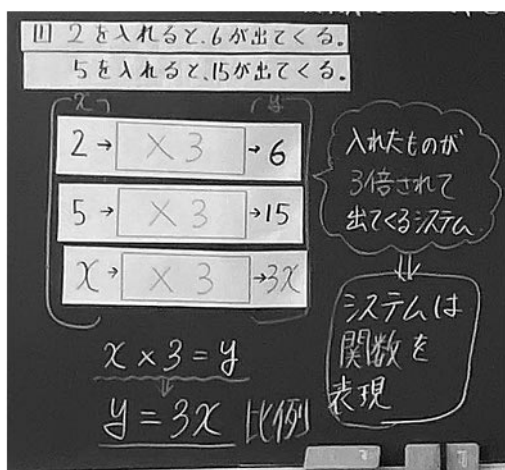 (1) 2を入れると、6が出てくる。
5を入れると、15が出てくる。
x
y
2→ ×3 →6
5→ ×3 →15
x→ ×3 →3x
入れたものが
3倍されて
出てくるシステム
システムは
関数を
表現
x×3=y
y=3x 比例